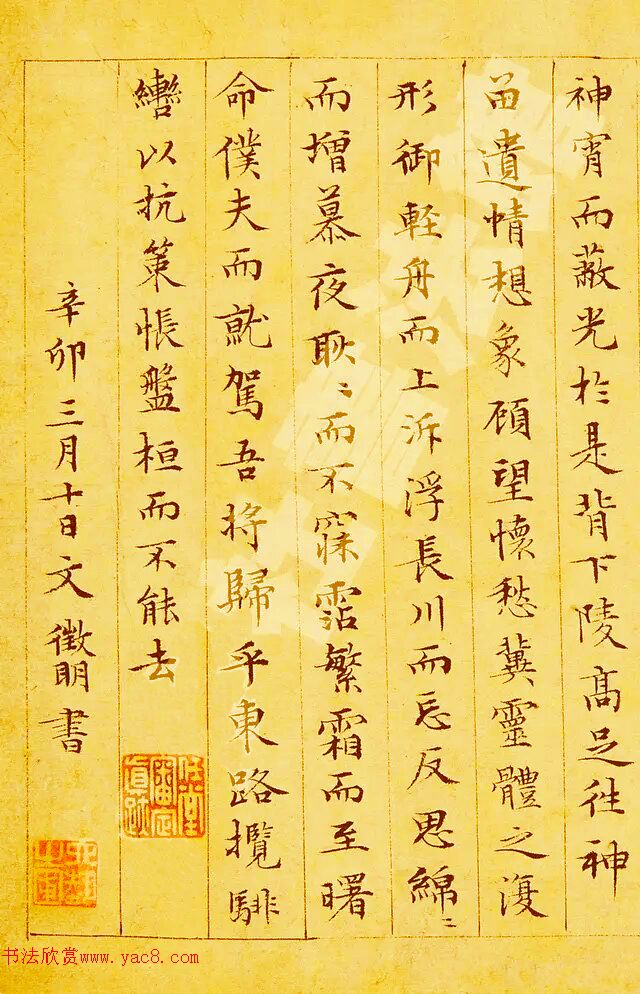 神宵而蔽光於是背下陵高足往神
留遺情想象顧望懷愁冀靈體之復
形御輕舟而上泝浮長川而忘反思綿〻
而增慕夜耿〻而不寐霑繁霜而至曙
命僕夫而就駕吾将歸乎東路攬騑
轡以抗策悵盤桓而不能去
辛卯三月十日文徵明書
书法欣赏www.yac8.com